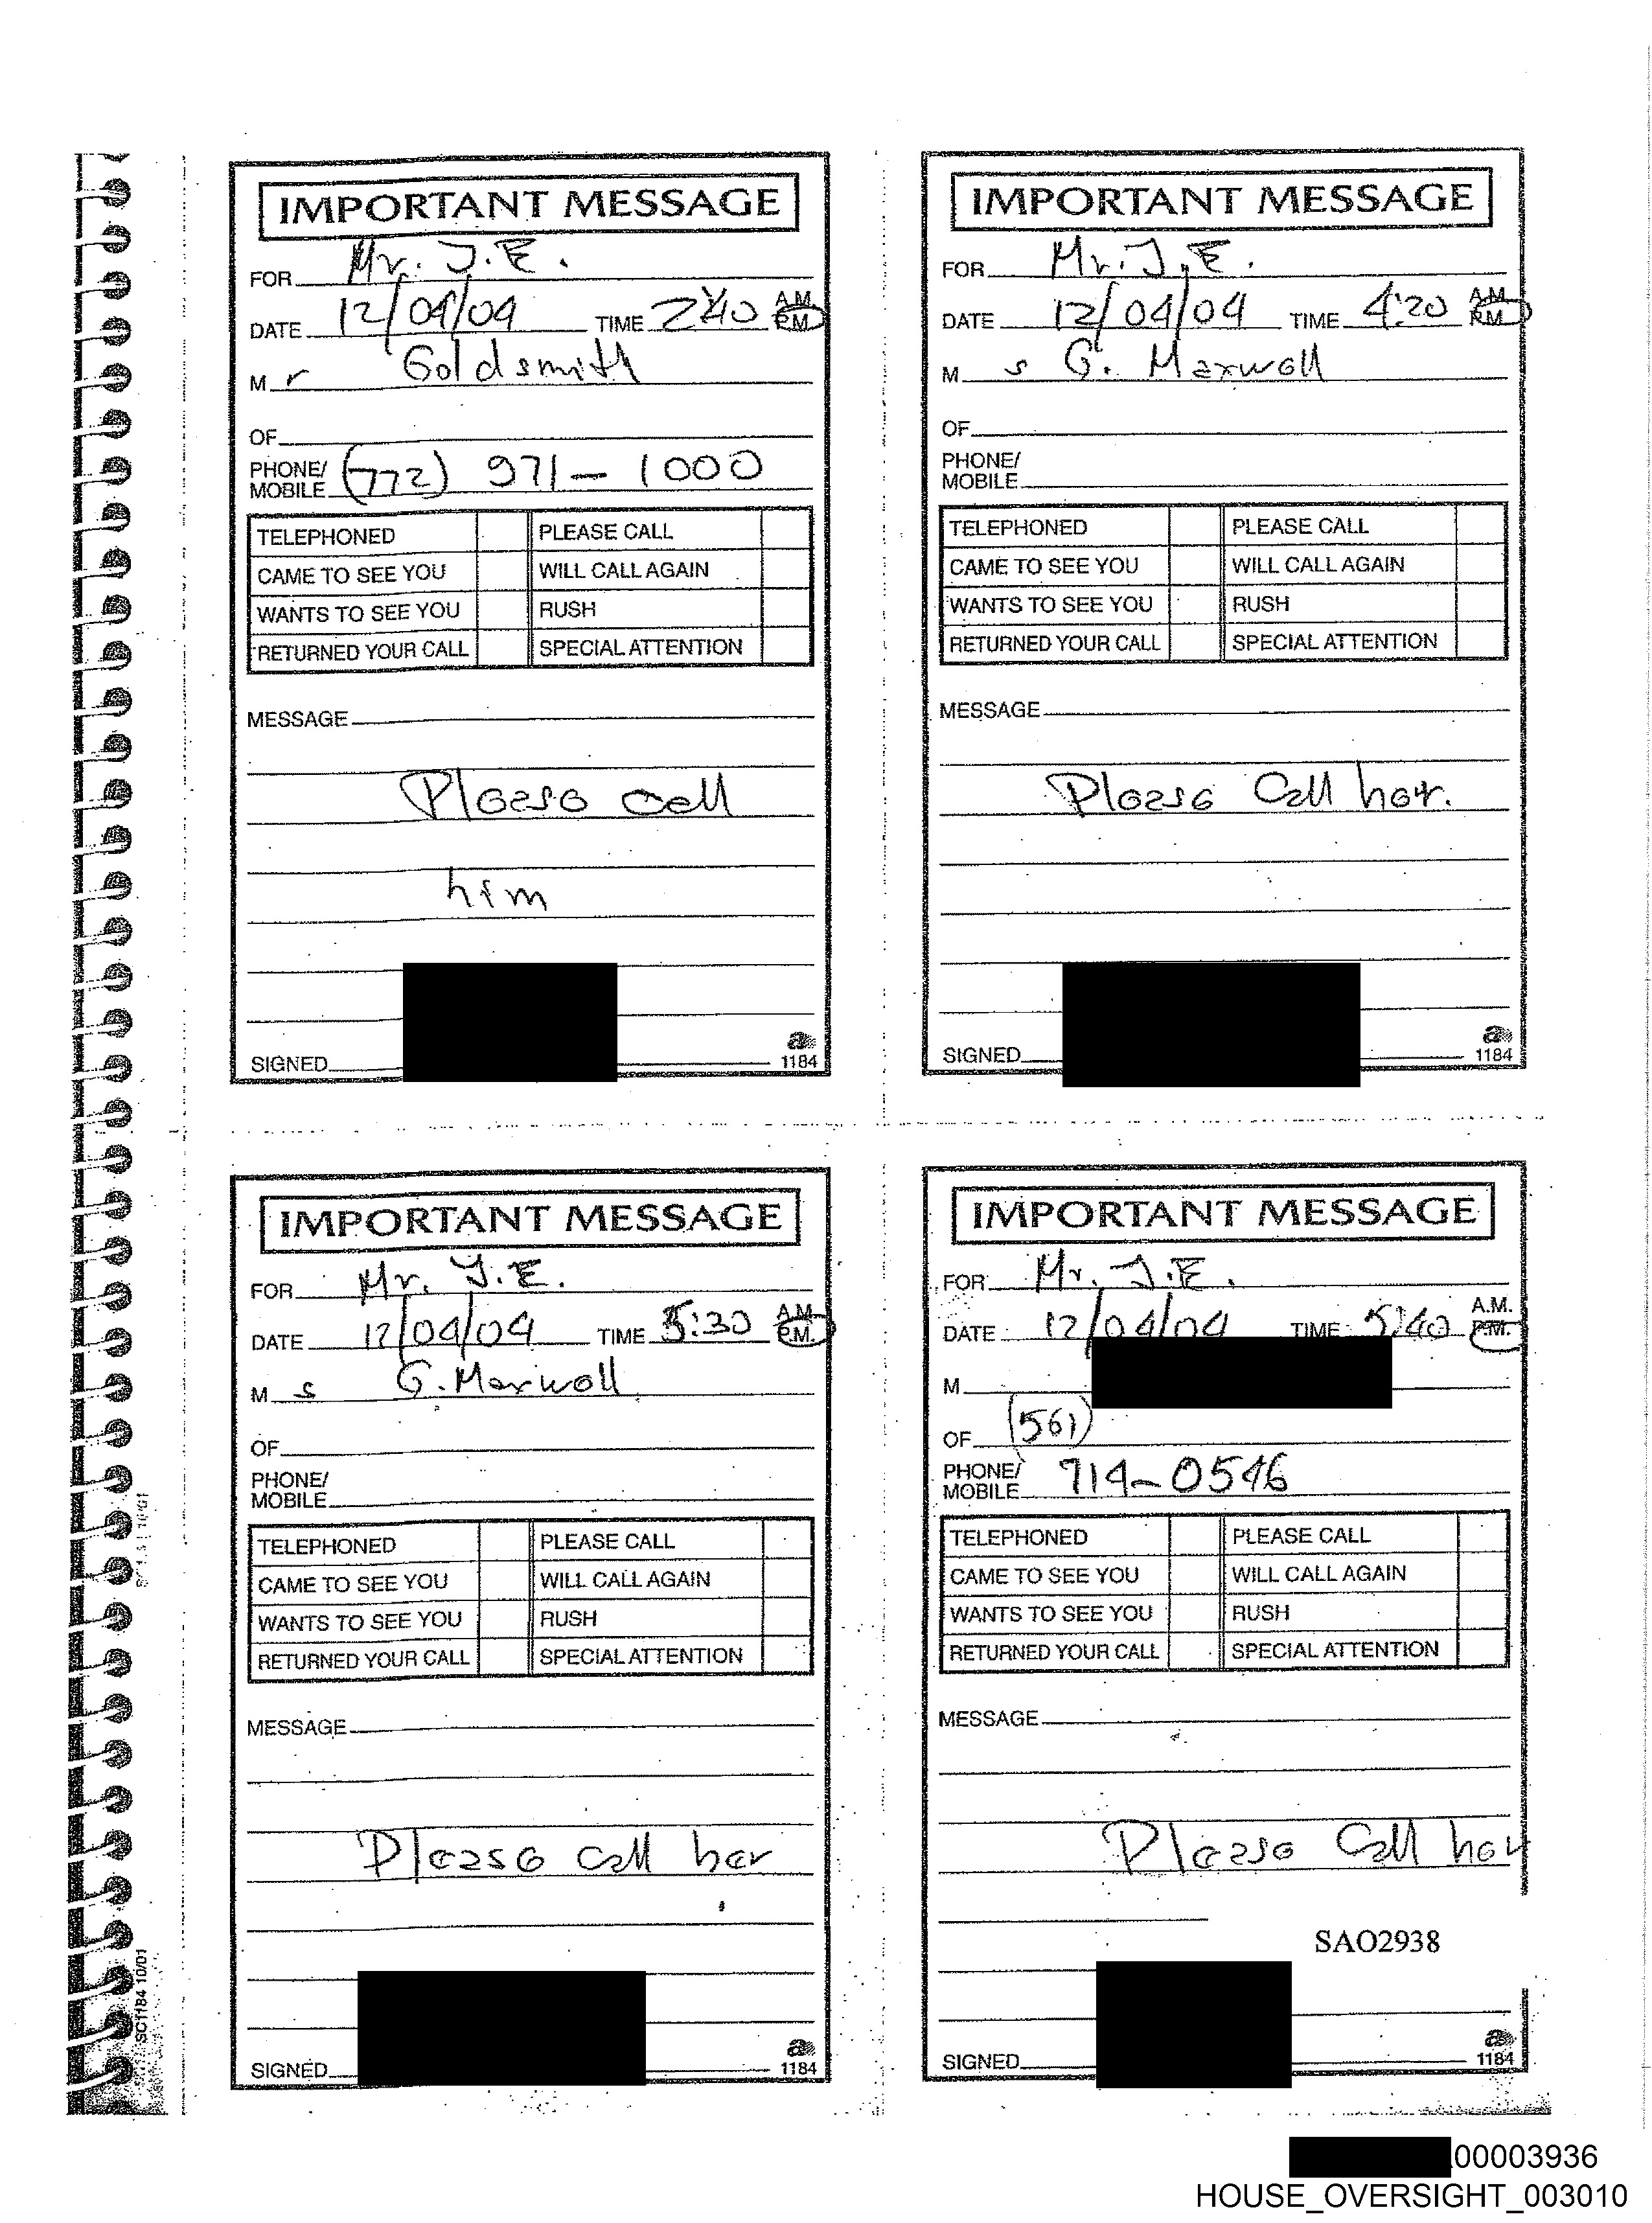 IMPORTANT MESSAGE
FOR Mr. J.E.
DATE 12/04/04 TIME 2:40 A.M. P.M.
M r Goldsmith
OF
PHONE/ MOBILE (772) 971-1000
TELEPHONED PLEASE CALL
CAME TO SEE YOU WILL CALL AGAIN
WANTS TO SEE YOU RUSH
RETURNED YOUR CALL SPECIAL ATTENTION
MESSAGE
Please call
him
SIGNED
a
1184
IMPORTANT MESSAGE
FOR Mr. J.E.
DATE 12/04/04 TIME 4:20 A.M. P.M.
M s G. Maxwell
OF
PHONE/ MOBILE
TELEPHONED PLEASE CALL
CAME TO SEE YOU WILL CALL AGAIN
WANTS TO SEE YOU RUSH
RETURNED YOUR CALL SPECIAL ATTENTION
MESSAGE
Please Call her.
SIGNED
a
1184
IMPORTANT MESSAGE
FOR Mr. J.E.
DATE 12/04/04 TIME 5:30 A.M. P.M.
M s G. Maxwell
OF
PHONE/ MOBILE
TELEPHONED PLEASE CALL
CAME TO SEE YOU WILL CALL AGAIN
WANTS TO SEE YOU RUSH
RETURNED YOUR CALL SPECIAL ATTENTION
MESSAGE
Please call her
SIGNED
a
1184
IMPORTANT MESSAGE
FOR Mr. J.E.
DATE 12/04/04 TIME 5:40 A.M. P.M.
M
OF (561)
PHONE/ MOBILE 714-0546
TELEPHONED PLEASE CALL
CAME TO SEE YOU WILL CALL AGAIN
WANTS TO SEE YOU RUSH
RETURNED YOUR CALL SPECIAL ATTENTION
MESSAGE
Please Call her
SAO2938
SIGNED
a
1184
SC1184 10/01
00003936
HOUSE_OVERSIGHT_003010